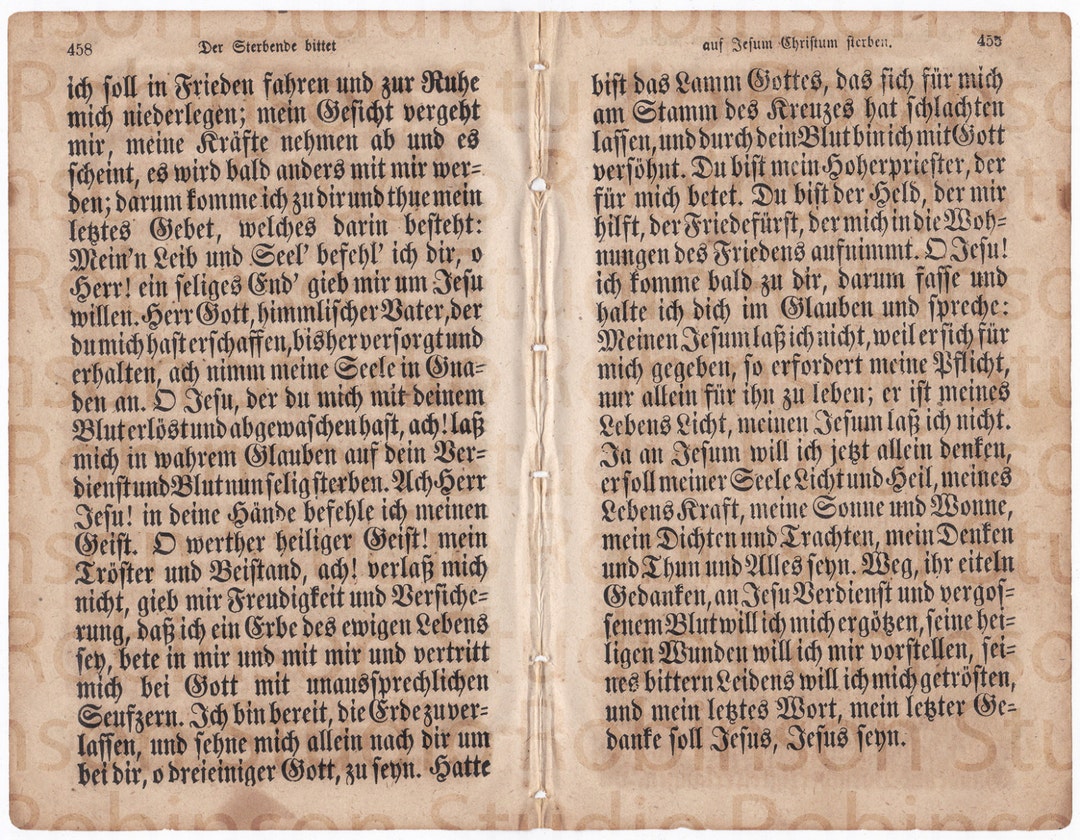 458
Der Sterbende bittet
ich soll in Frieden fahren und zur Ruhe
mich niederlegen; mein Gesicht vergeht
mir, meine Kräfte nehmen ab und es
scheint, es wird bald anders mit mir wer-
den; darum komme ich zu dir und thue mein
letztes Gebet, welches darin besteht:
Mein'n Leib und Seel' befehl' ich dir, o
Herr! ein seliges End' gieb mir um Jesu
willen. Herr Gott, himmlischer Vater, der
du mich hast erschaffen, bisher versorgt und
erhalten, ach nimm meine Seele in Gna-
den an. O Jesu, der du mich mit deinem
Blut erlöst und abgewaschen hast, ach! laß
mich in wahrem Glauben auf dein Ver-
dienst und Blut nun selig sterben. Ach Herr
Jesu! in deine Hände befehle ich meinen
Geist. O werther heiliger Geist! mein
Tröster und Beistand, ach! verlaß mich
nicht, gieb mir Freudigkeit und Versiche-
rung, daß ich ein Erbe des ewigen Lebens
sey, bete in mir und mit mir und vertritt
mich bei Gott mit unaussprechlichen
Seufzern. Ich bin bereit, die Erde zu ver-
lassen, und sehne mich allein nach dir um
bei dir, o dreieiniger Gott, zu seyn. Hatte
auf Jesum Christum sterben.
455
bist das Lamm Gottes, das sich für mich
am Stamm des Kreuzes hat schlachten
lassen, und durch dein Blut bin ich mit Gott
versöhnt. Du bist mein Hoherpriester, der
für mich betet. Du bist der Held, der mir
hilft, der Friedefürst, der mich in die Woh-
nungen des Friedens aufnimmt. O Jesu!
ich komme bald zu dir, darum fasse und
halte ich dich im Glauben und spreche:
Meinen Jesum laß ich nicht, weil er sich für
mich gegeben, so erfordert meine Pflicht,
nur allein für ihn zu leben; er ist meines
Lebens Licht, meinen Jesum laß ich nicht.
Ja an Jesum will ich jetzt allein denken,
er soll meiner Seele Licht und Heil, meines
Lebens Kraft, meine Sonne und Wonne,
mein Dichten und Trachten, mein Denken
und Thun und Alles seyn. Weg, ihr eiteln
Gedanken, an Jesu Verdienst und vergos-
senem Blut will ich mich ergötzen, seine hei-
ligen Wunden will ich mir vorstellen, sei-
nes bittern Leidens will ich mich getrösten,
und mein letztes Wort, mein letzter Ge-
danke soll Jesus, Jesus seyn.
Robinson Studio